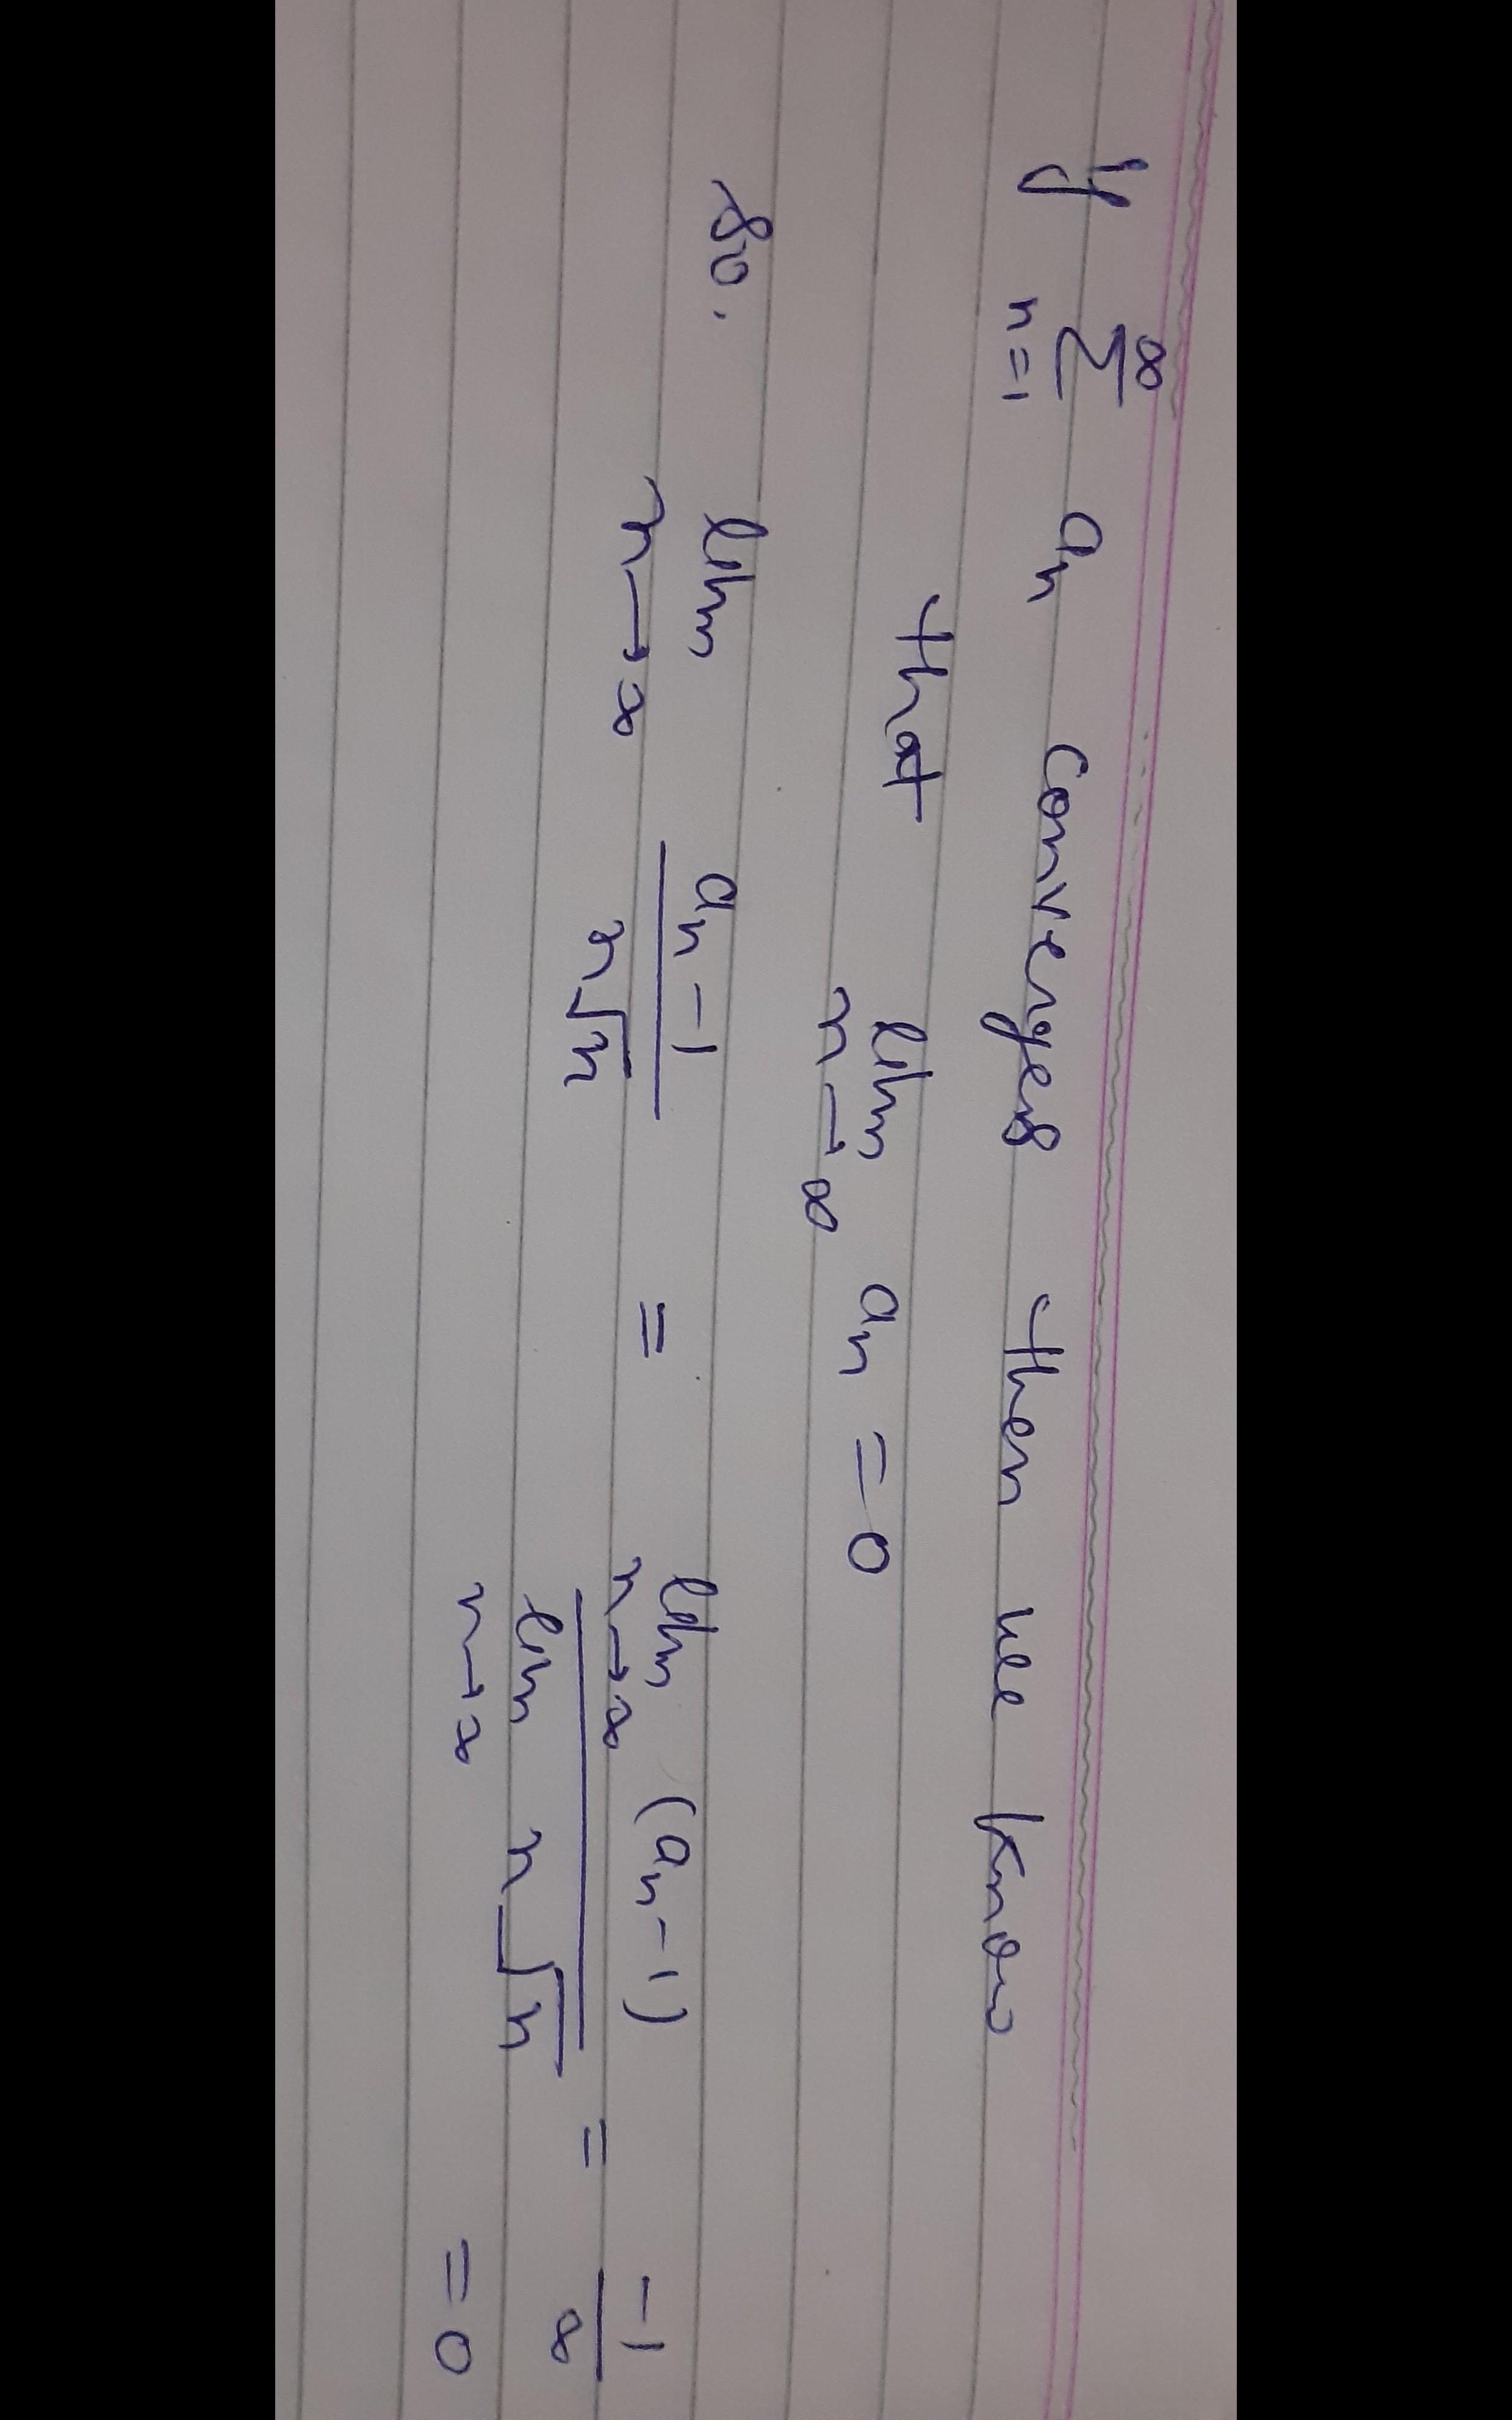 If ∞∑n=1 an converges then we know
that lim n→∞ an = 0
So, lim n→∞ (an - 1)/(n√n) = (lim n→∞ (an - 1))/(lim n→∞ n√n) = -1/∞
= 0